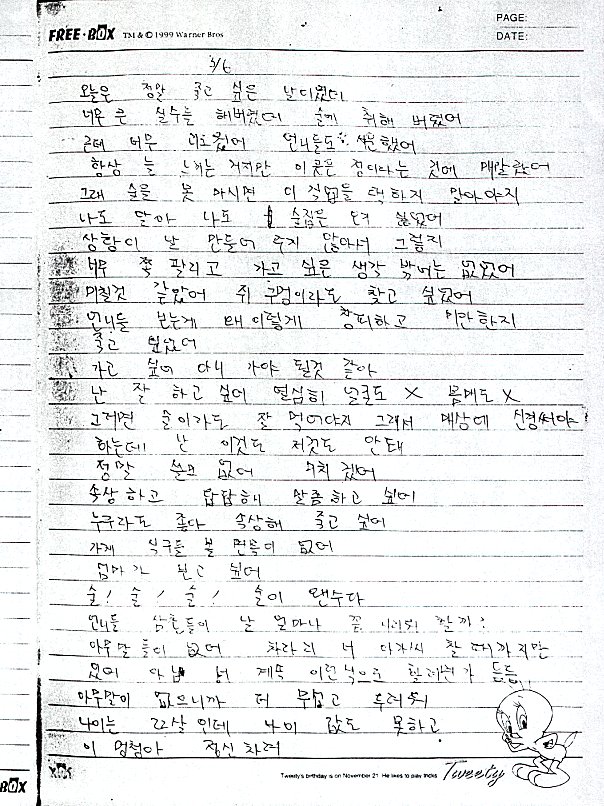 FREE·BOX TM & © 1999 Warner Bros
PAGE:
DATE:
3/6
오늘은 정말 죽고 싶은 날이었어
너무 큰 실수를 해버렸어 술에 취해 버렸어
근데 너무 언니들도
항상 늘 느끼는 거지만 이곳은 정이라는 것에 메말랐어
그래 술을 못 마시면 이 직업을 택하지 말아야지
나도 알아 나도 술집은 오기 싫었어
상황이 날 만들어 주지 않아서 그렇지
너무 쪽 팔리고 가고 싶은 생각 밖에는 없었어
미칠것 같았어 쥐 구멍이라도 찾고 싶었어
언니들 보는게 왜 이렇게 창피하고 미안한지
죽고 싶었어
가고 싶어 다시 가야 될것 같아
난 잘 하고 싶어 열심히 얼굴도 X 몸매도 X
그러면 술이라도 잘 먹어야지 그래서 매상에 신경써야
하는데! 난 이것도 저것도 안돼
정말 쓸모 없어 미치겠어
속상하고 답답해 하고 싶어
누구라도 좋다 속상해 죽고 싶어
가게 식구들 볼 면목이 없어
엄마가 보고 싶어
술! 술! 술! 술이 왠수다
언니들 삼촌들이 날 얼마나 꼴
아무말들이 없어 차라리 너
계속 이런식으로
아무말이 없으니까 더 무섭고 두려워
나이는 22살인데 나이 값도 못하고
이 멍청아 정신차려
BOX
Tweety's birthday is on November 21. He likes to play tricks
Tweety